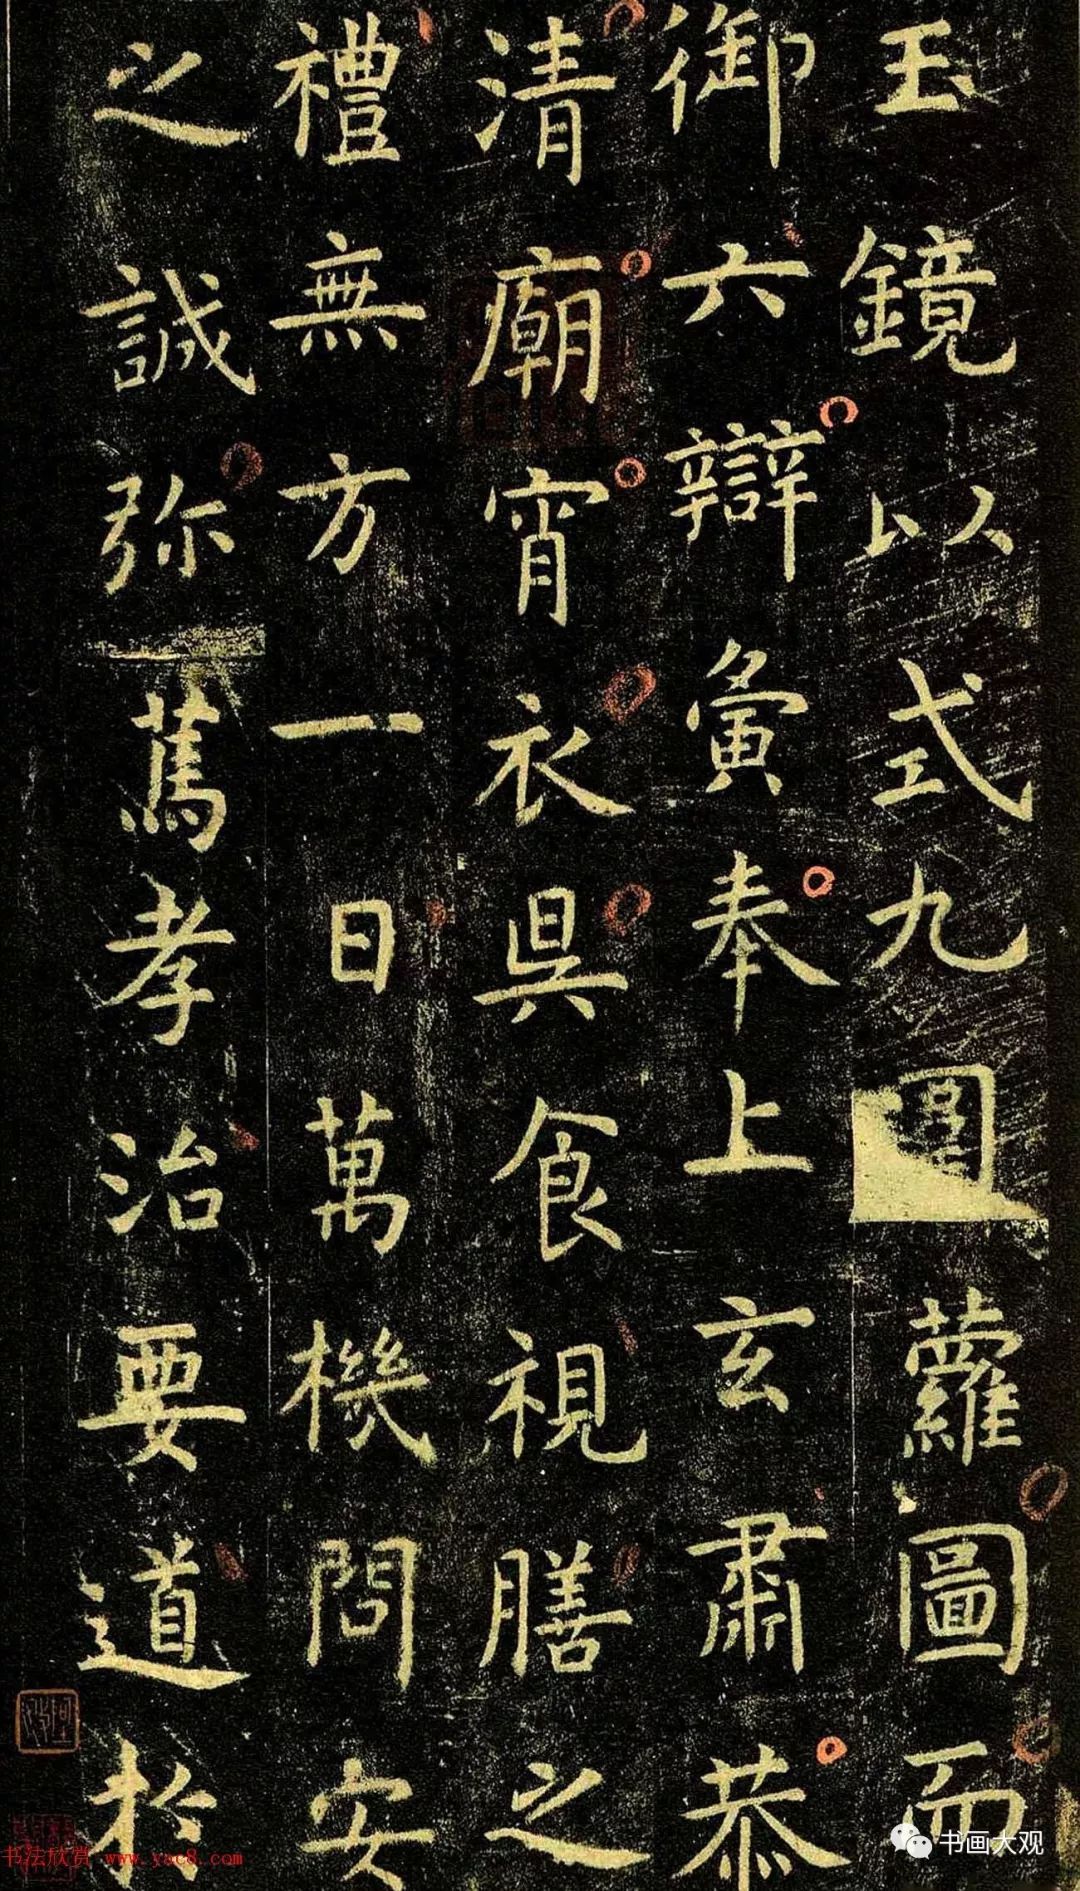 玉鏡以式九圍蘿圖而
御六辯彙奉上玄肅恭
清廟宵衣昃食視膳之
禮無方一日萬機問安
之誠弥篤孝治要道於
书画大观
书法欣赏 www.yac8.com